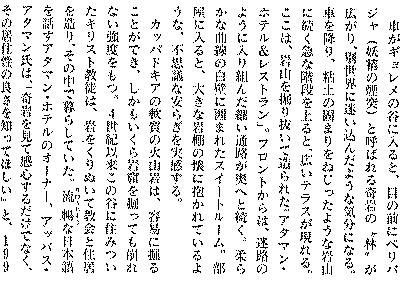 車がギョレメの谷に入ると、目の前にペリバ
ジャ（妖精の煙突）と呼ばれる奇岩の〝林〟が
広がり、別世界に迷い込んだような気分になる。
車を降り、粘土の固まりをねじったような岩山
に続く急な階段を上ると、広いテラスが現れる。
ここは、岩山を掘り抜いて造られたアタマン・
ホテル＆レストラン。フロントからは、迷路の
ように入り組んだ細い通路が奥へと続く。柔ら
かな曲線の白壁に囲まれたスイートルーム。部
屋に入ると、大きな岩棚の懐に抱かれているよ
うな、不思議な安らぎを実感する。
カッパドキアの軟質の火山岩は、容易に掘る
ことができ、しかもいくら岩窟を掘っても崩れ
ない強度をもつ。4世紀以来この谷に住みつい
たキリスト教徒は、岩をくりぬいて教会と住居
を造り、その中で暮らしていた。流暢な日本語
を話すアタマン・ホテルのオーナー、アッバス・
アタマン氏は、「奇岩を見て感心するだけでなく、
その居住性の良さを知ってほしい」と、199